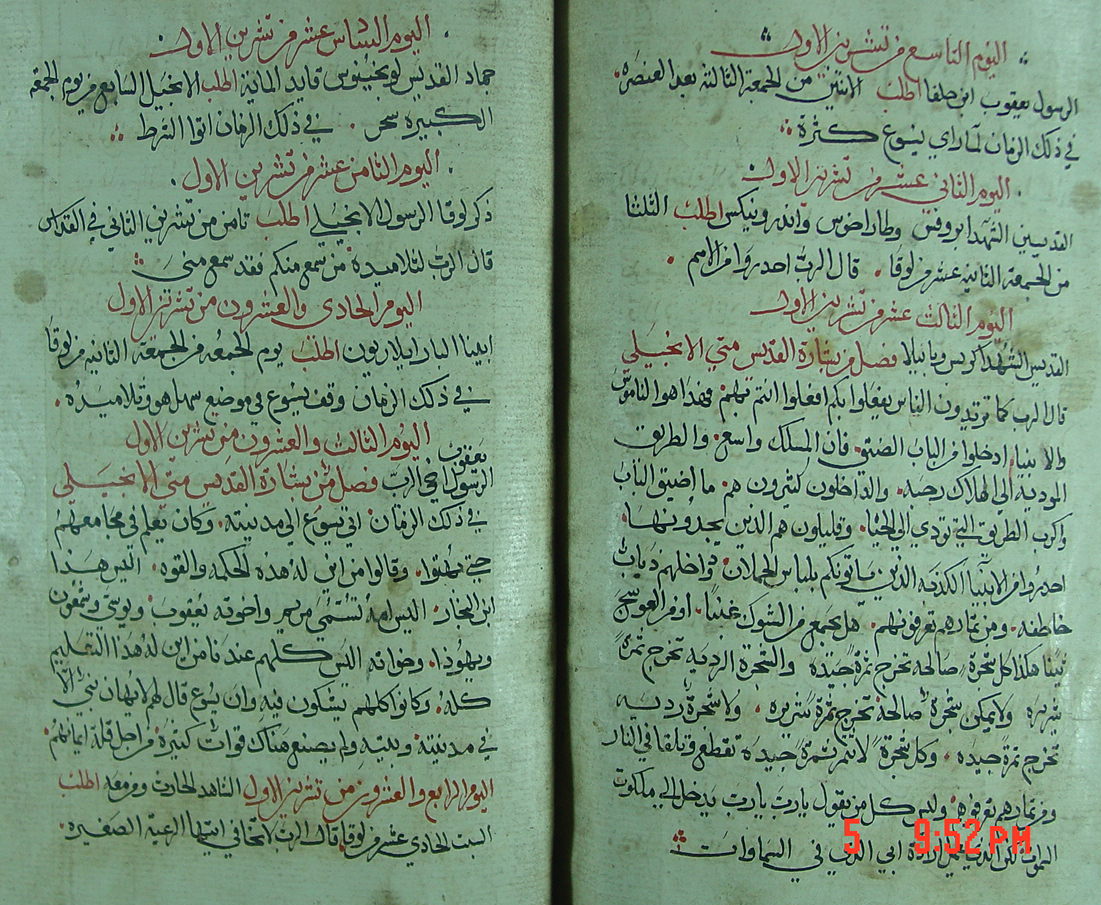 اليوم التاسع من تشرين الاول
الرسول يعقوب ابن حلفا اطلب الاثنين من الجمعة الثالثة بعد العنصره
في ذلك الزمان لما راي يسوع كثرة
اليوم الثاني عشر من تشرين الاول
القديسين الشهدا بروفس وطاراخوس واندرونيكس اطلب الثلثا
من الجمعة الثانيه عشر من لوقا قال الرب احدروا من الاسم
اليوم الثالث عشر من تشرين الاول
القديس الشهدا كربس وبابيلا فصل من بشارة القديس متي الانجيلي
قال الرب كما تريدون الناس يفعلوا بكم افعلوا انتم بهم فهذا هو الناموس
والانبيا ادخلوا من الباب الضيق فان المسلك واسع والطريق
الموديه الي الهلاك رحبه والداخلون كثيرون هم ما اضيق الباب
واكرب الطريق التي تودي الي الحيا وقليلون هم الذين يجدونها
احدروا من الانبيا الكدبه الذين ياتونكم بلباس الحملان ومن داخلهم دياب
خاطفه ومن ثمارهم تعرفونهم هل يجمع من الشوك عنبا او من العوسج
تينا هكذا كل شجرة صالحه تخرج ثمرة جيده والشجرة الرديه تخرج ثمرة
شريره ولا يمكن شجرة صالحة تخرج ثمرة شريره ولا شجرة رديه
تخرج ثمرة جيده وكل شجرة لا تثمر ثمرة جيده تقطع وتلقا في النار
ومن ثمارهم تعرفوهم وليس كل من يقول يارب يارب يدخل الي ملكوت
السموات لكن الذي يعمل ارادة ابي الذي في السماوات
5 9:52 PM
اليوم السادس عشر من تشرين الاول
جهاد القديس لونجينوس قايد الماية اطلب الانجيل السابع من يوم الجمعه
الكبيره سحر في ذلك الزمان اتوا الشرط
اليوم الثامن عشر من تشرين الاول
ذكر لوقا الرسول الانجيلي اطلب ثامن من تشرين الثاني في القداس
قال الرب لتلاميذه من سمع منكم فقد سمع مني
اليوم الحادي والعشرون من تشرين الاول
ابينا البار ايلاريون اطلب يوم الجمعه من الجمعة الثانيه من لوقا
في ذلك الزمان وقف يسوع في موضع سهل هو وتلاميذه
اليوم الثالث والعشرون من تشرين الاول يعقوب
الرسول اخي الرب فصل من بشارة القديس متي الانجيلي
في ذلك الزمان اتي يسوع الي مدينته وكان يعلم في مجامعهم
حتي بهتوا وقالوا من اين له هذه الحكمه والقوه اليس هذا
ابن النجار اليس امه تسمي مريم واخوته يعقوب ويوسي وشمعون
ويهوذا واخواته اليس كلهم عندنا من اين له هذا التعليم
كله وكانوا كلهم يشكون فيه وان يسوع قال لهم لا يهان نبي الا
في مدينته وبيته ولم يصنع هناك قوات كثيرة من اجل قلة ايمانهم
اليوم الرابع والعشرون من تشرين الاول الشاهد الحارث ومن معه اطلب
السبت الحادي عشر من لوقا قال الرب لا تخافي ايتها الرعية الصغيره